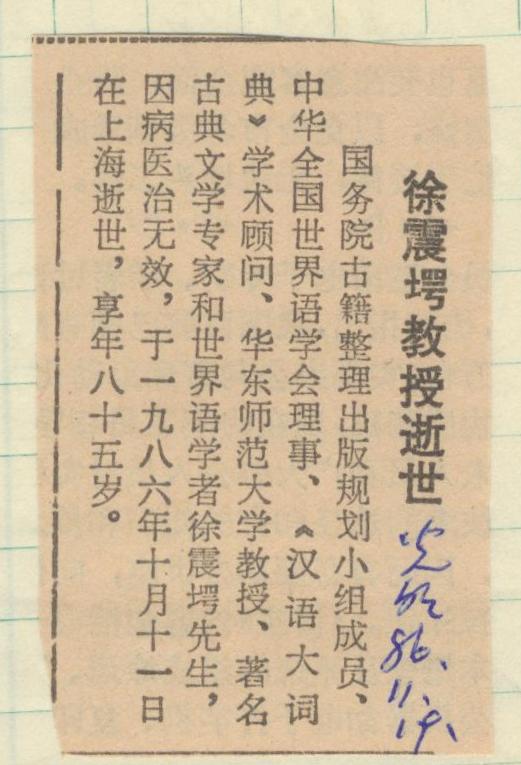 徐震堮教授逝世
光明 86.11.19.
国务院古籍整理出版规划小组成员、
中华全国世界语学会理事、《汉语大词
典》学术顾问、华东师范大学教授、著名
古典文学专家和世界语学者徐震堮先生，
因病医治无效，于一九八六年十月十一日
在上海逝世，享年八十五岁。